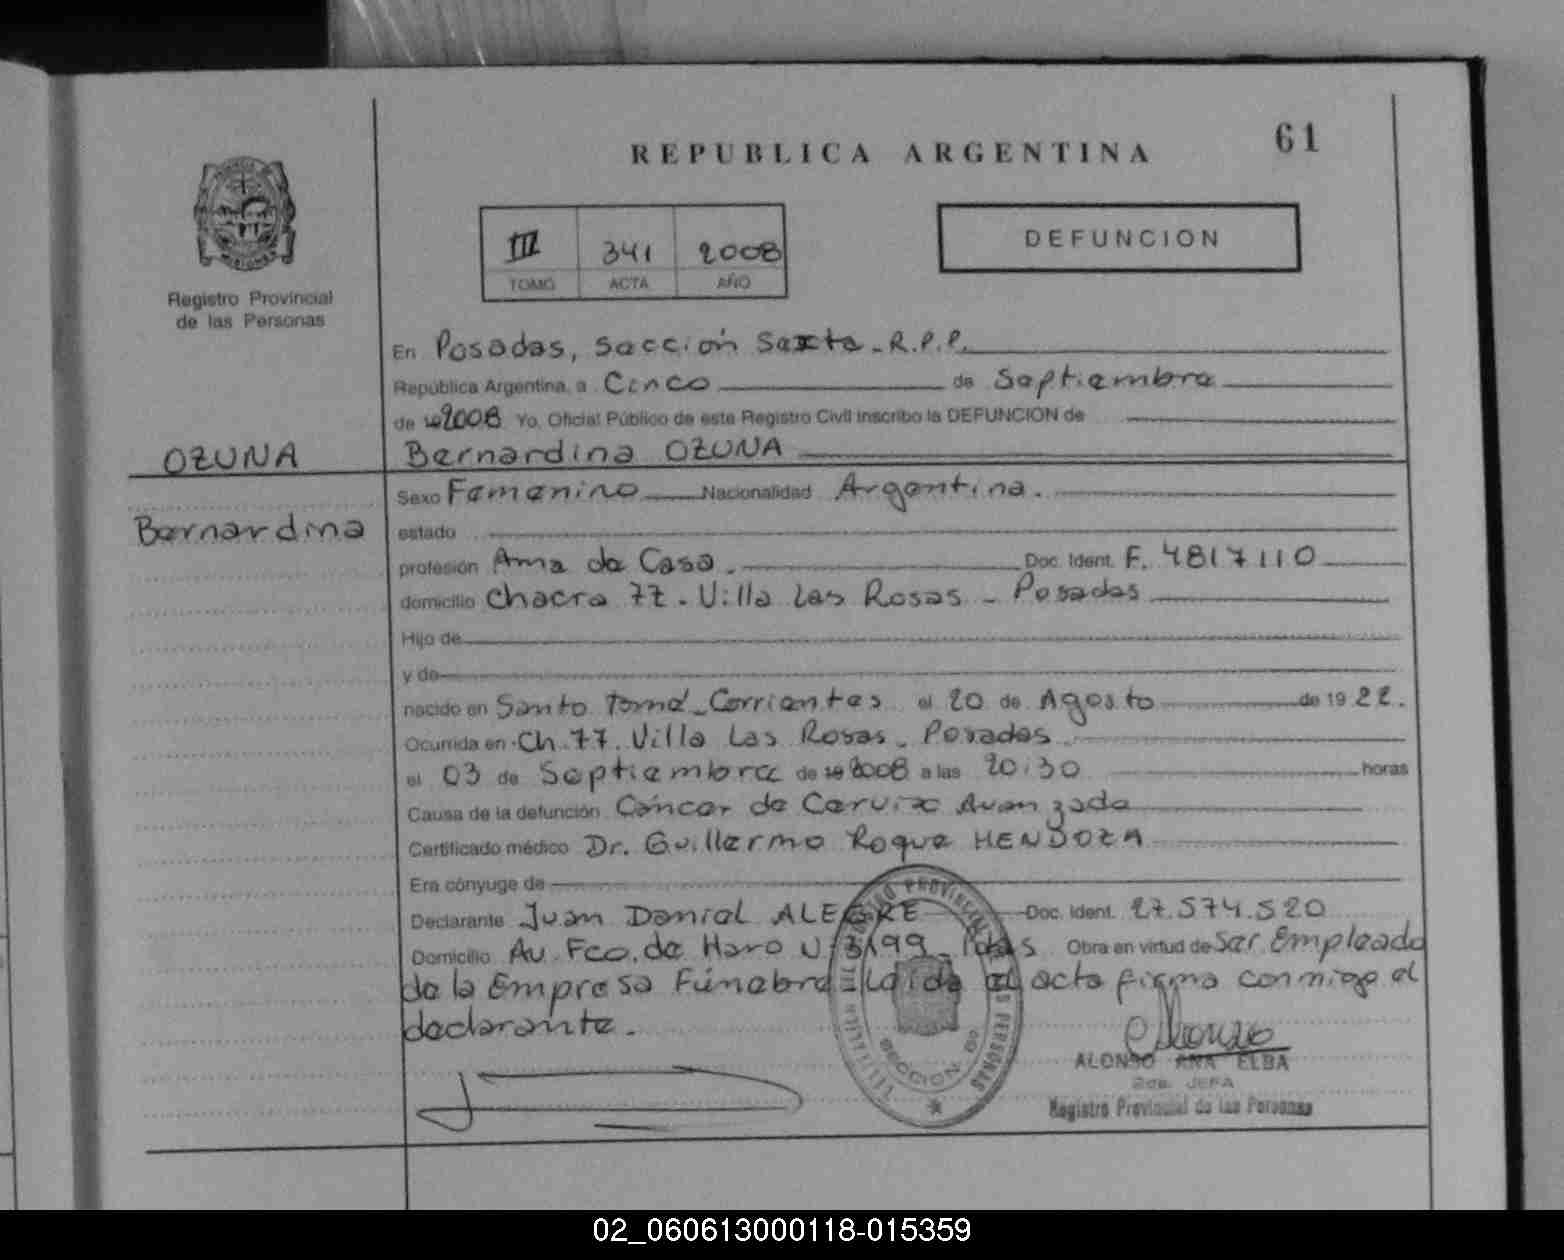 REPUBLICA ARGENTINA
61
III 341 2008
TOMO ACTA AÑO
DEFUNCION
Registro Provincial
de las Personas
OZUNA
Bernardina
En Posadas, Sección Sexta - R.P.P.
República Argentina, a Cinco de Septiembre
de 2008 Yo, Oficial Público de este Registro Civil inscribo la DEFUNCION de
Bernardina OZUNA
Sexo Femenino Nacionalidad Argentina.
estado
profesión Ama de Casa. Doc. Ident. F. 4817110
domicilio Chacra 77. Villa Las Rosas - Posadas
Hijo de
y de
nacido en Santo Tomé - Corrientes el 20 de Agosto de 1922.
Ocurrida en Ch. 77. Villa Las Rosas - Posadas
el 03 de Septiembre de 2008 a las 20:30 horas
Causa de la defunción Cáncer de Cervix Avanzado
Certificado médico Dr. Guillermo Roque MENDOZA
Era cónyuge de
Declarante Juan Daniel ALEGRE Doc. Ident. 27.574.520
Domicilio Av. Fco. de Haro Nº 3199 - Pdas Obra en virtud de Ser Empleado
de la Empresa Fúnebre - Leída el acta firma conmigo el
declarante.
REGISTRO PROVINCIAL DE LAS PERSONAS
SECCION 6º
ALONSO ANA ELBA
2da. JEFA
Registro Provincial de las Personas
02_060613000118-015359